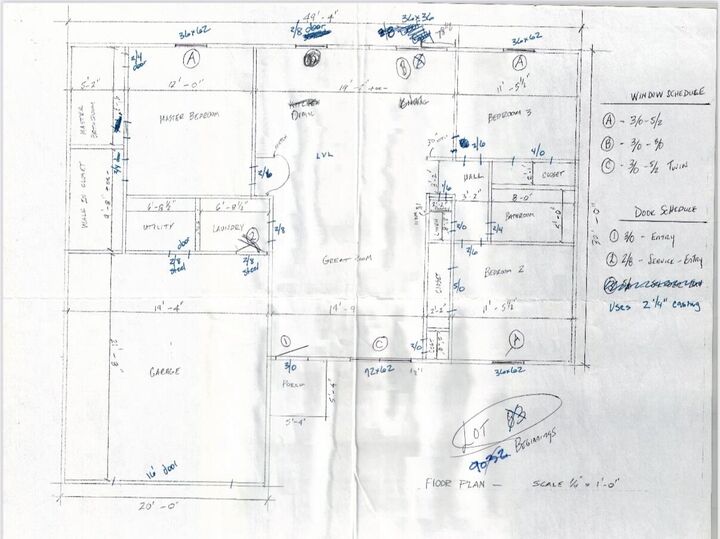 49'-4"
2/8 door
36x36
36x62
36x62
2/4 door
A
B
A
12'-0"
11'-5½"
MASTER BEDROOM
DINING
BEDROOM 3
MASTER BATHROOM
LVL
2/6
4/0
2/6
HALL
CLOSET
3'-2"
8'-0"
WALK IN CLOSET
6'-8½"
6'-8½"
UTILITY
LAUNDRY
2/8
2
door
2/8 steel
2/8 steel
LINEN
2/0
2/4
BATHROOM
5'-0"
GREAT ROOM
2/6
BEDROOM 2
CLOSET
5/0
19'-4"
14'-9
2'-2"
11'-5½"
GARAGE
1
3/0
C
72x62
2/0
COAT
A
36x62
PORCH
5'-4"
5'-4"
16' door
20'-0"
30'-0"
WINDOW SCHEDULE
A - 3/0-5/2
B - 3/0 - 3/0
C - 3/0 - 5/2 TWIN
DOOR SCHEDULE
1 3/0 - ENTRY
2 2/8 - SERVICE - ENTRY
Uses 2¼" casing
LOT
9032 Beginnings
FLOOR PLAN - SCALE ¼" = 1'-0"